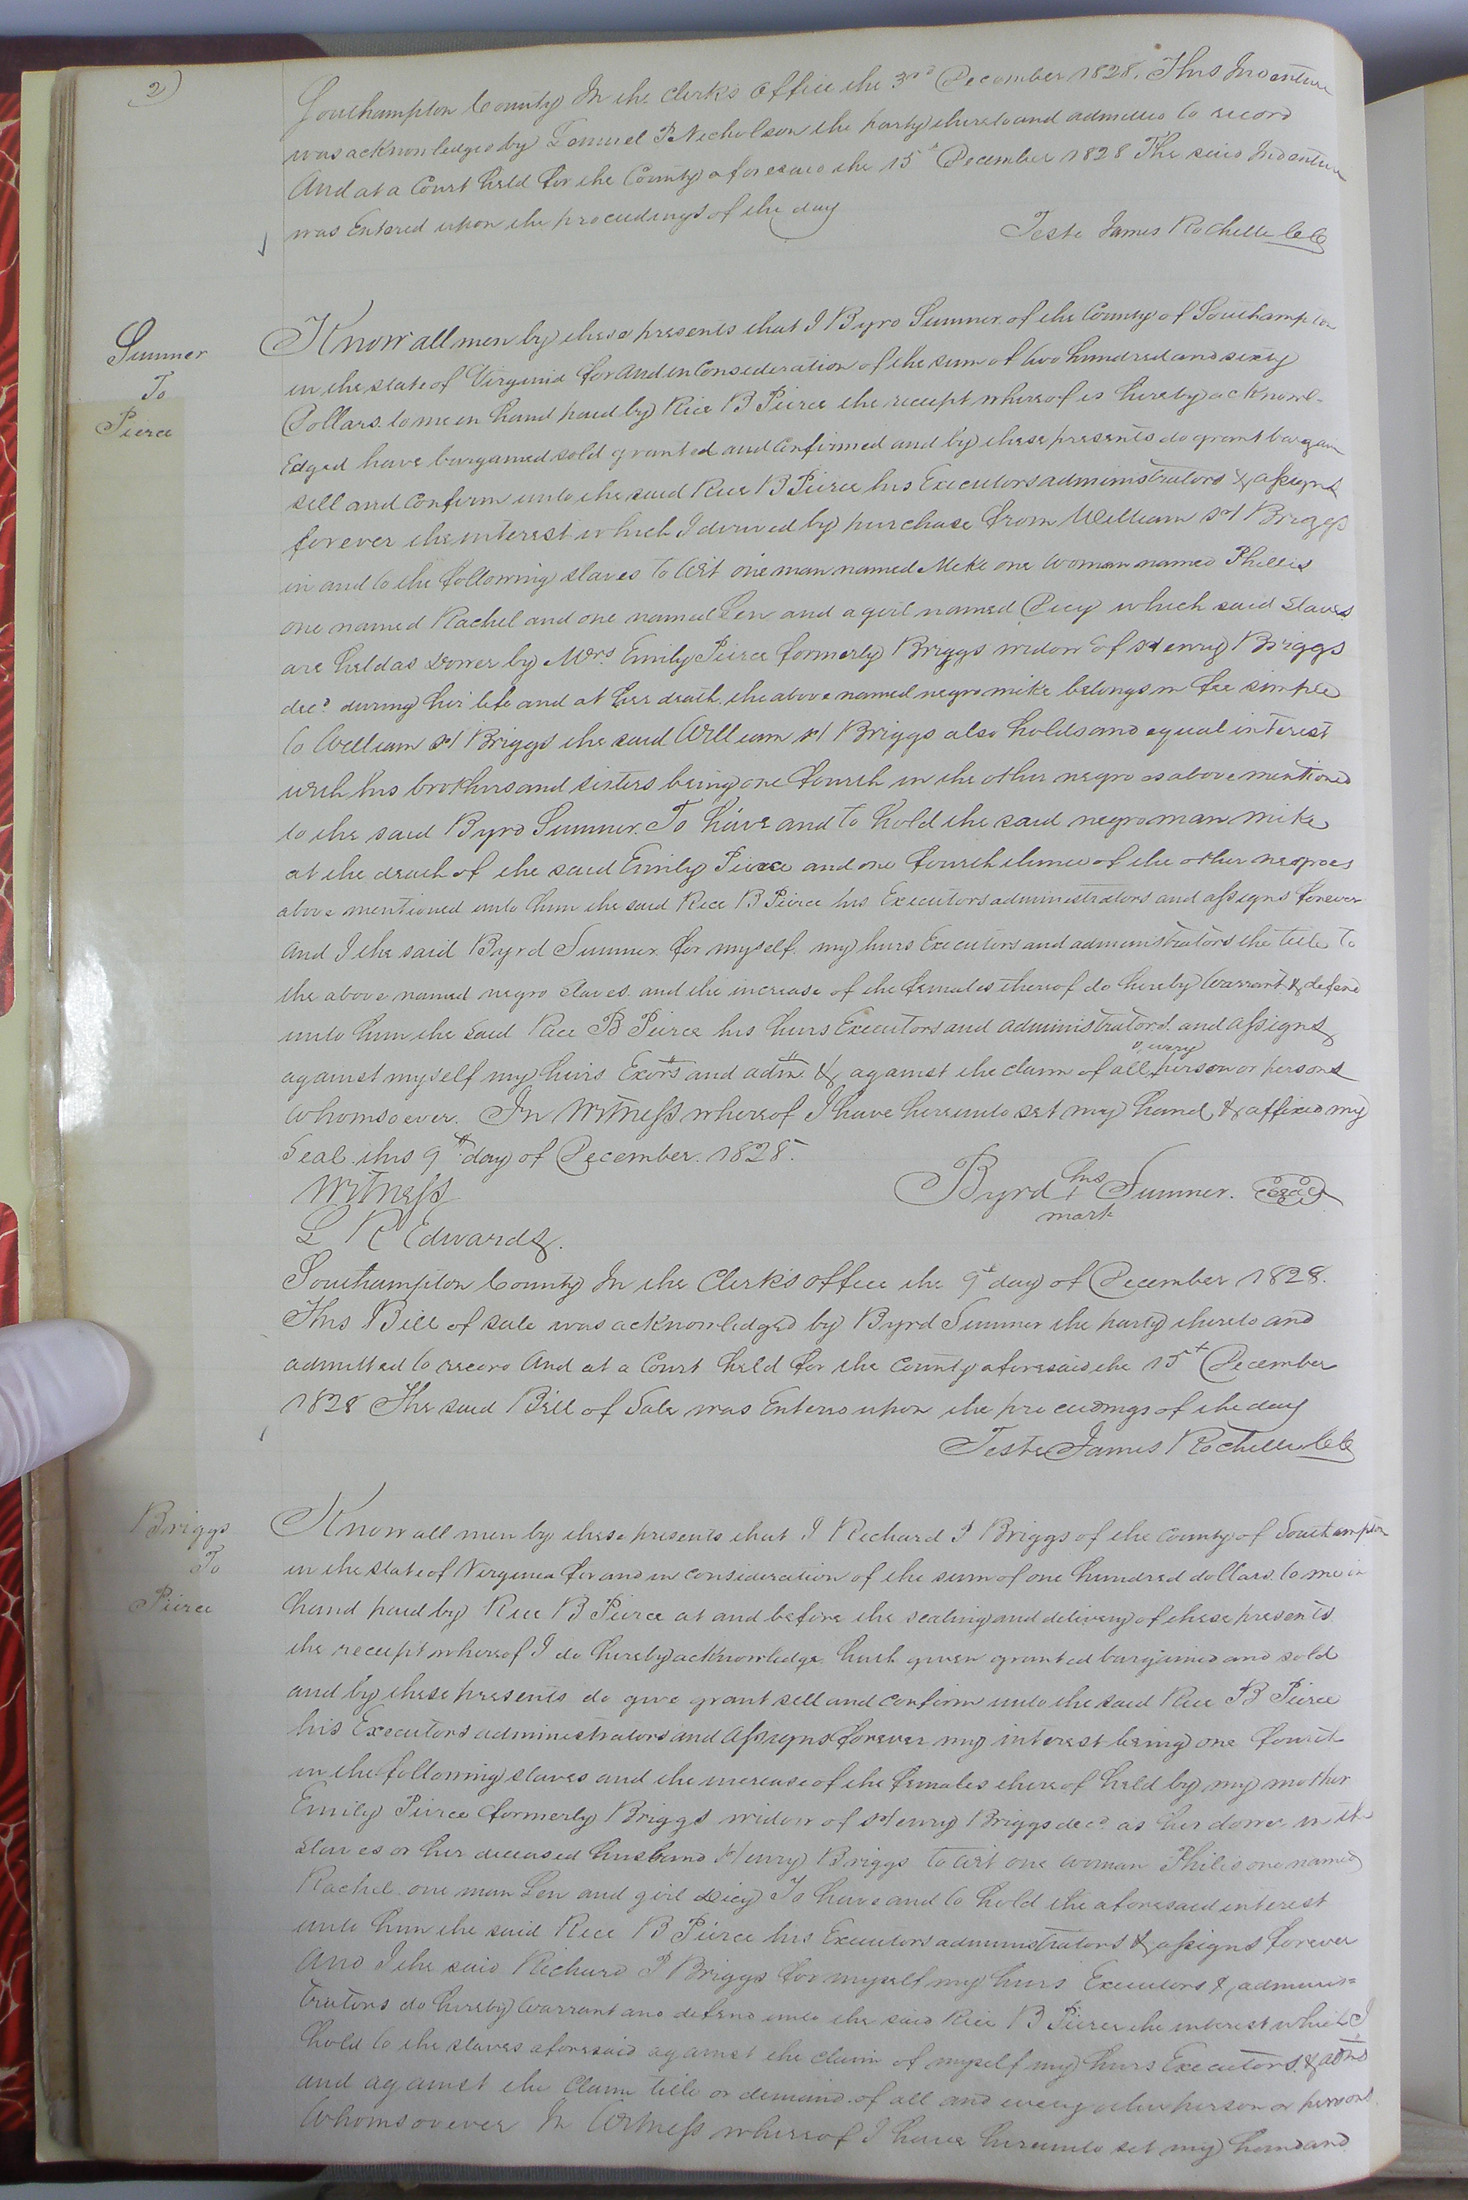 2)
Southampton County In the Clerk's Office the 3rd December 1828. This Indenture
was acknowledged by Lemuel P Nicholson the party thereto and admitted to record
And at a Court held for the County aforesaid the 15th December 1828 The said Indenture
was Entered upon the proceedings of the day
Teste James Rochelle CC
Summer
To
Pierce
Know all men by these presents that I Byrd Summer of the County of Southampton
in the state of Virginia for and in Consideration of the sum of two hundred and sixty
Dollars to me in hand paid by Rice B Pierce the receipt whereof is hereby acknowl-
Edged have bargained sold granted and Confirmed and by these presents do grant bargain
sell and Confirm unto the said Rice B Pierce his Executors administrators & assigns
forever the interest which I derived by purchase from William H Briggs
in and to the following slaves to Wit one man named Mike one woman named Phillis
one named Rachel and one named Len and a girl named Dicy which said slaves
are held as Dower by Mrs Emily Pierce formerly Briggs widow of Henry Briggs
decd during her life and at her death the above named negro mike belongs in fee simple
to William H Briggs the said William H Briggs also holds and equal interest
with his brothers and sisters being one fourth in the other negroes above mentioned
to the said Byrd Summer. To have and to hold the said negro man mike
at the death of the said Emily Pierce and one fourth of the other negroes
above mentioned unto him the said Rice B Pierce his Executors administrators and assigns forever
And I the said Byrd Summer for myself my heirs Executors and administrators the title to
the above named negro slaves and the increase of the females thereof do hereby Warrant & defend
unto him the said Rice B Pierce his heirs Executors and administrators and assigns
against myself my heirs Exors and adm & against the claim of all & every person or persons
whomsoever. In Witness whereof I have hereunto set my hand & affixed my
Seal this 9th day of December 1828.
Witness
Byrd his Summer. Seal
mark
L R Edwards.
Southampton County In the Clerk's office the 9th day of December 1828.
This Bill of sale was acknowledged by Byrd Summer the party thereto and
admitted to record And at a Court held for the County aforesaid the 15th December
1828 The said Bill of Sale was Entered upon the proceedings of the day
Teste James Rochelle CC
Briggs
To
Pierce
Know all men by these presents that I Richard P Briggs of the County of Southampton
in the state of Virginia for and in consideration of the sum of one hundred dollars to me in
hand paid by Rice B Pierce at and before the sealing and delivery of these presents
the receipt whereof I do hereby acknowledge hath given granted bargained and sold
and by these presents do give grant sell and confirm unto the said Rice B Pierce
his Executors administrators and Assigns forever my interest being one fourth
in the following slaves and the increase of the females thereof held by my mother
Emily Pierce formerly Briggs widow of Henry Briggs decd as her dower in the
slaves of her deceased husband Henry Briggs to Wit one woman Philis one named
Rachel one man Len and girl Dicy To have and to hold the aforesaid interest
unto him the said Rice B Pierce his Executors administrators & assigns forever
And I the said Richard P Briggs for myself my heirs Executors & adminis=
trators do hereby Warrant and defend unto the said Rice B Pierce the interest which I
hold to the slaves aforesaid against the claim of myself my heirs Executors & adms
and against the Claim title or demand of all and every other person or persons
Whomsoever In Witness whereof I have hereunto set my hand and